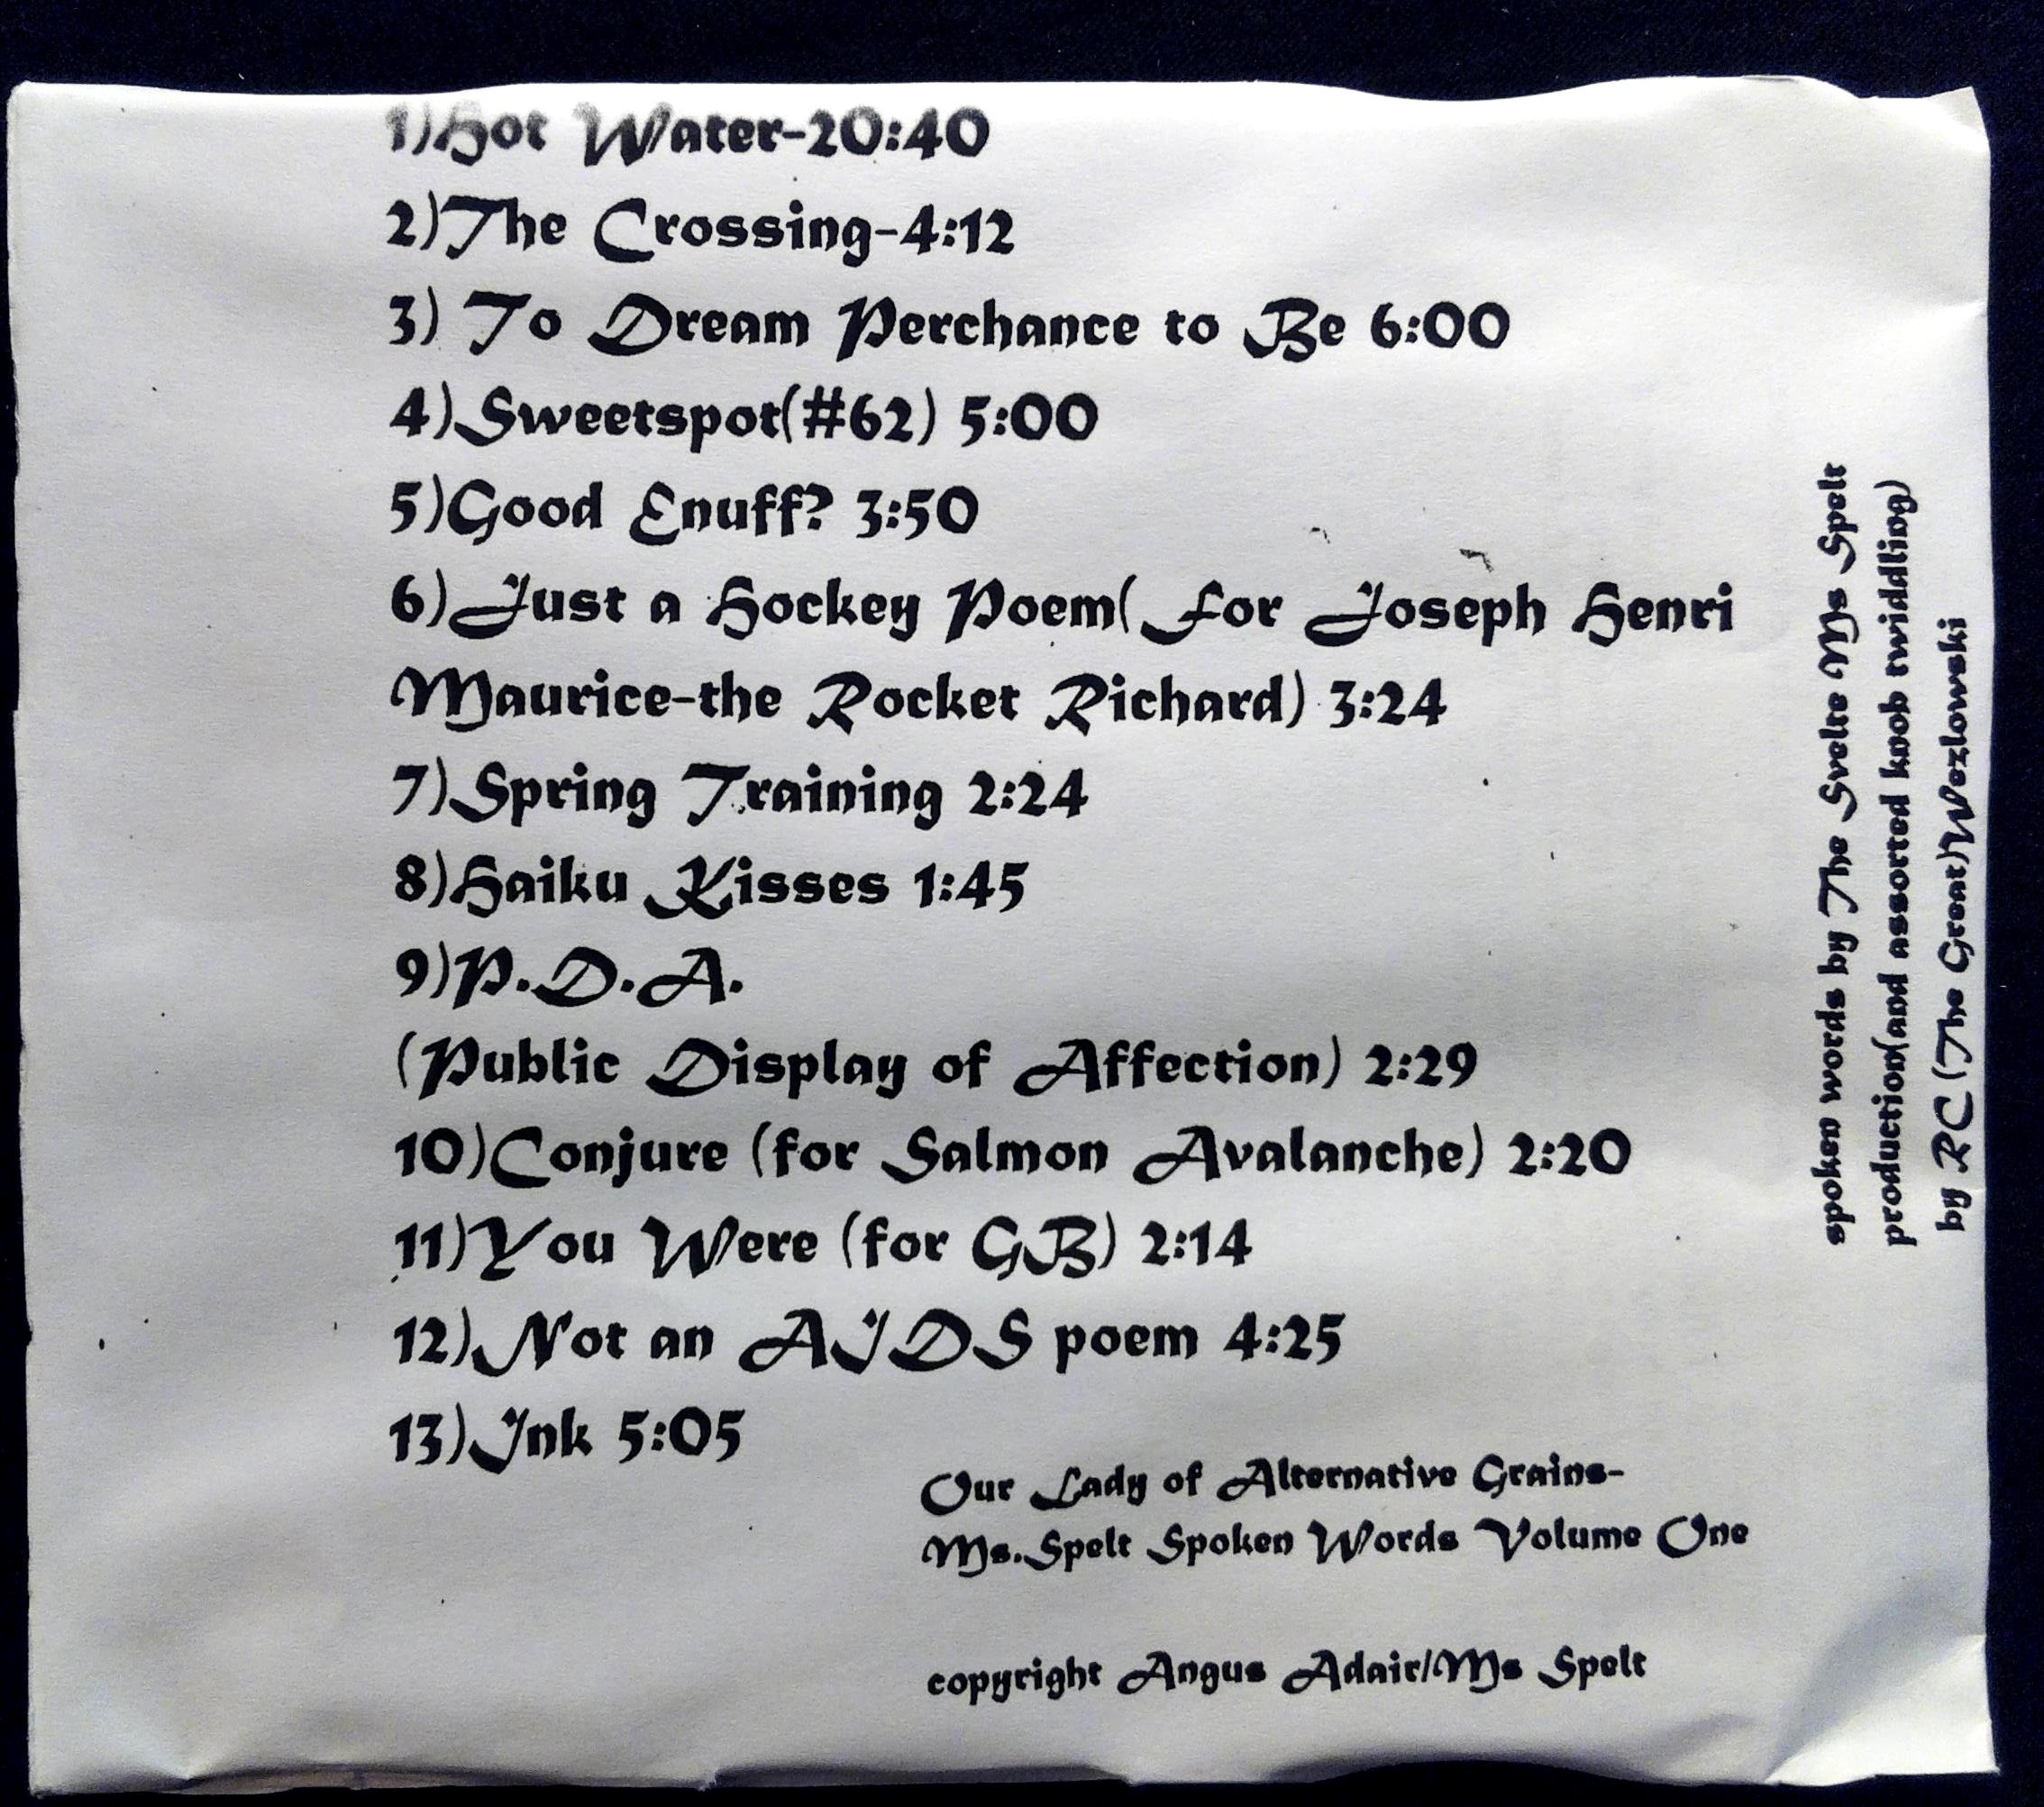 1)Hot Water-20:40
2)The Crossing-4:12
3) To Dream Perchance to Be 6:00
4)Sweetspot(#62) 5:00
5)Good Enuff? 3:50
6)Just a Hockey Poem( For Joseph Henri
Maurice-the Rocket Richard) 3:24
7)Spring Training 2:24
8)Haiku Kisses 1:45
9)P.D.A.
(Public Display of Affection) 2:29
10)Conjure (for Salmon Avalanche) 2:20
11)You Were (for GB) 2:14
12)Not an AIDS poem 4:25
13)Ink 5:05
Our Lady of Alternative Grains-
Ms.Spelt Spoken Words Volume One
copyright Angus Adair/Ms Spelt
spoken words by The Svelte Ms Spelt
production(and assorted knob twiddling)
by RC (The Great)Wezlowski